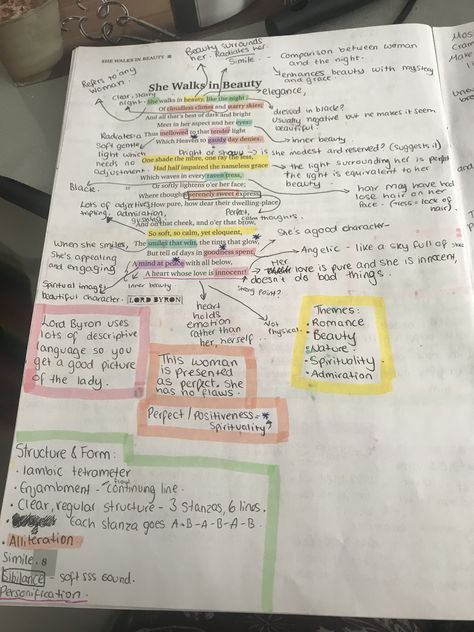 SHE WALKS IN BEAUTY
Beauty surrounds
her. Radiates her.
Simile.
- Comparison between woman
and the night.
enhances beauty with mystery
and grace.
Refers to any
woman.
She Walks in Beauty
elegance,
clear, starry
night
She walks in beauty, like the night
Of cloudless climes and starry skies;
And all that's best of dark and bright
Meet in her aspect and her eyes:
Thus mellowed to that tender light
Which Heaven to gaudy day denies.
dressed in black?
Usually negative but he makes it seem
beautiful.
inner beauty
Radiates a
Soft gentle
light which
needs no
adjustment.
Bright or showy → is she modest and reserved? (suggests it)
One shade the more, one ray the less,
Had half impaired the nameless grace
Which waves in every raven tress,
Or softly lightens o'er her face;
Where thoughts serenely sweet express
How pure, how dear their dwelling-place.
the light surrounding her is perfect
the light is equivalent to her
beauty
Black.
hair may have had
lose hair on her
face - (tress = lock of
hair)
Lots of adjectives
tripling, admiration,
Perfect,
calm thoughts.
And on that cheek, and o'er that brow,
So soft, so calm, yet eloquent,
The smiles that win, the tints that glow,
But tell of days in goodness spent,
A mind at peace with all below,
A heart whose love is innocent!
LORD BYRON
When she smiles,
She's appealing
and engaging
She's a good character
Angelic - like a sky full of stars
Her love is pure and she is innocent,
doesn't do bad things.
Spiritual image
beautiful character.
inner beauty
strong point?
heart
holds
emotion
rather than
her, herself.
Not
physical.
Lord Byron uses
lots of descriptive
language so you
get a good picture
of the lady.
This woman
is presented
as perfect. She
has no flaws.
Perfect / Positiveness = *
Spirituality
Themes:
• Romance
• Beauty
• Nature
• Spirituality
• Admiration
Structure & Form:
• Iambic tetrameter
• Enjambment - continuing line.
flow
• Clear, regular structure - 3 stanzas, 6 lines.
• Each stanza goes A-B-A-B-A-B.
• Alliteration
Simile. 8
Sibilance - soft sss sound.
Personification.